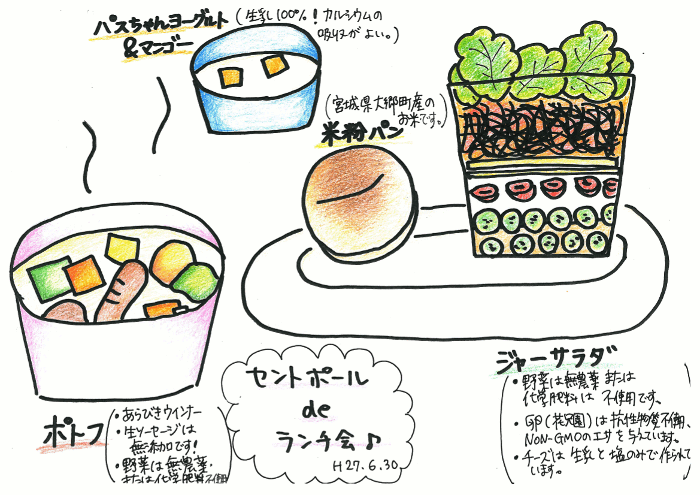 パスちゃんヨーグルト
&マンゴー
(生乳100%!カルシウムの
吸収がよい。)
(宮城県大郷町産の
お米です。)
米粉パン
ポトフ
・あらびきウインナー
・生ソーセージは
無添加です!
・野菜は無農薬・
または化学肥料不使用
セントポール
de
ランチ会♪
H27.6.30
ジャーサラダ
・野菜は無農薬または
化学肥料は不使用です。
・卵(花兄園)は抗生物質不使用、
NON-GMOのエサを与えています。
・チーズは生乳と塩のみで作られて
います。